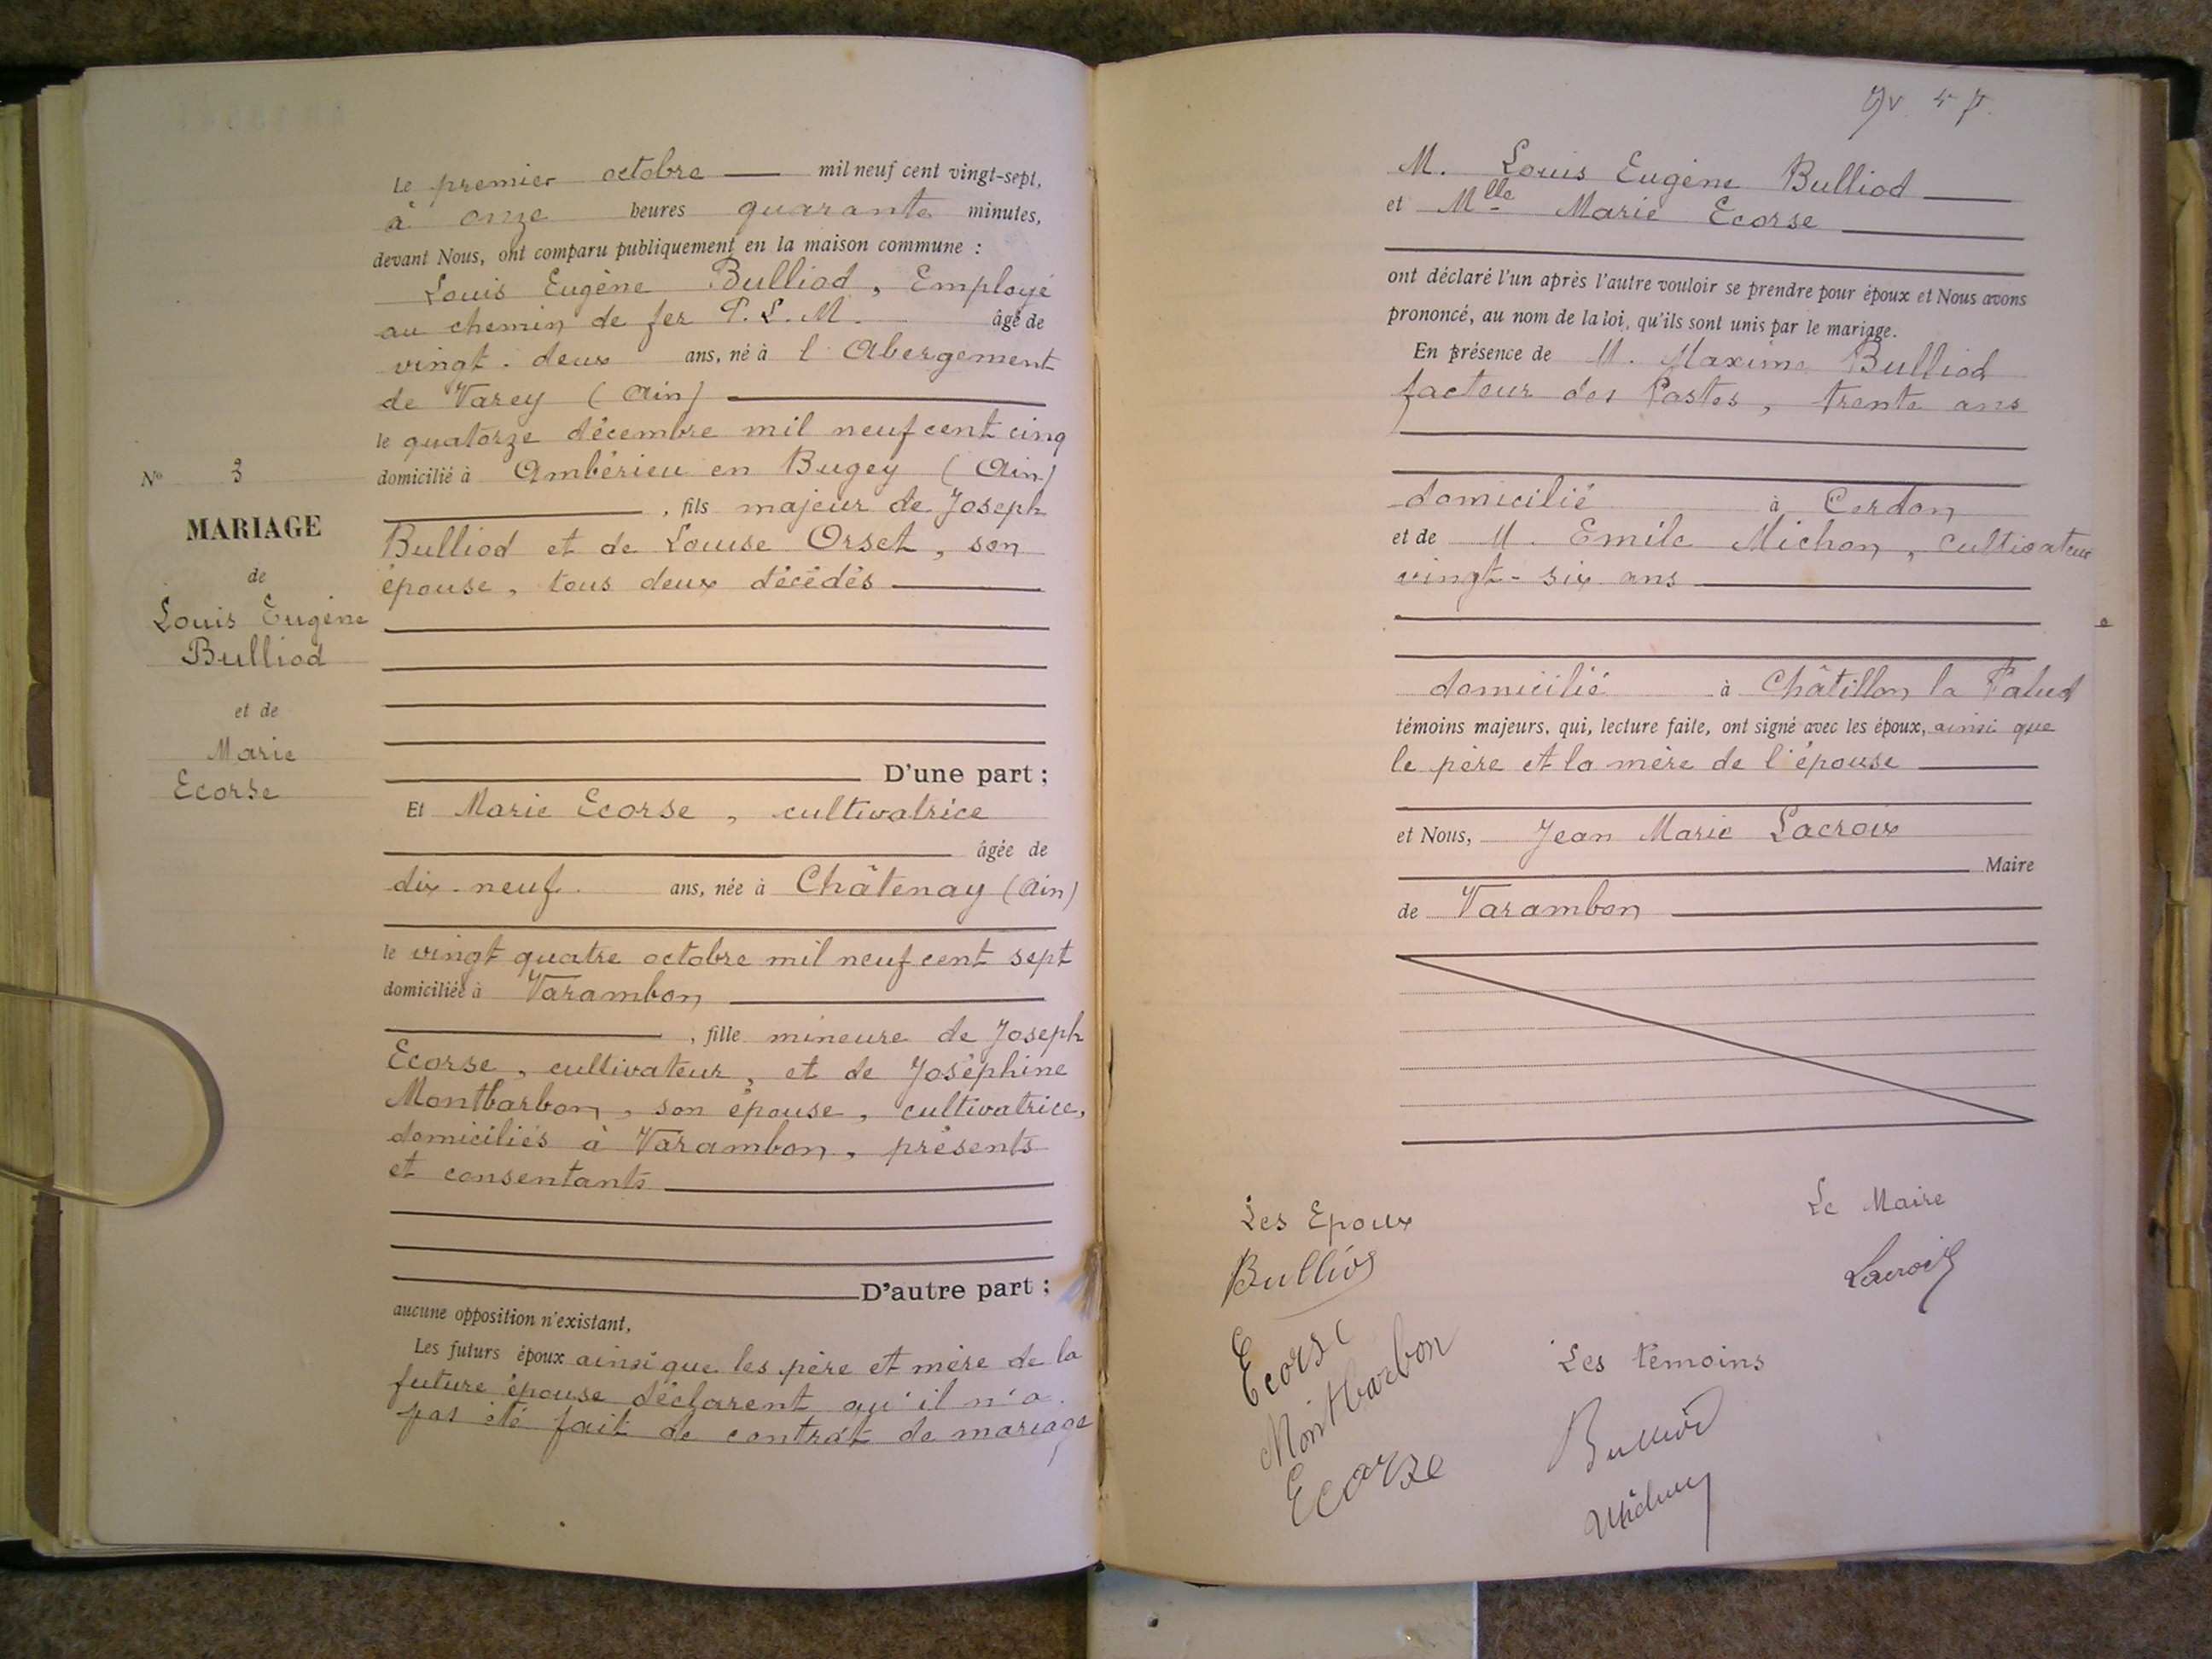 N° 3
MARIAGE
de
Louis Eugène
Bulliod
et de
Marie
Ecorse
Le premier octobre mil neuf cent vingt-sept,
à onze heures quarante minutes,
devant Nous, ont comparu publiquement en la maison commune :
Louis Eugène Bulliod, Employé
au chemin de fer P.L.M. âgé de
vingt-deux ans, né à l'Abergement
de Varey (Ain)
le quatorze décembre mil neuf cent cinq
domicilié à Ambérieu en Bugey (Ain)
, fils majeur de Joseph
Bulliod et de Louise Orset, son
épouse, tous deux décédés
D'une part ;
Et Marie Ecorse, cultivatrice
âgée de
dix-neuf ans, née à Châtenay (Ain)
le vingt quatre octobre mil neuf cent sept
domiciliée à Varambon
, fille mineure de Joseph
Ecorse, cultivateur, et de Joséphine
Montbarbon, son épouse, cultivatrice,
domiciliés à Varambon, présents
et consentants
D'autre part ;
aucune opposition n'existant,
Les futurs époux ainsi que les père et mère de la
future épouse déclarent qu'il n'a
pas été fait de contrat de mariage
M. Louis Eugène Bulliod
et Mlle Marie Ecorse
ont déclaré l'un après l'autre vouloir se prendre pour époux et Nous avons
prononcé, au nom de la loi, qu'ils sont unis par le mariage.
En présence de M. Maxime Bulliod
facteur des Postes, trente ans
domicilié à Cerdon
et de M. Emile Michon, cultivateur
vingt-six ans
domicilié à Châtillon la Palud
témoins majeurs, qui, lecture faite, ont signé avec les époux, ainsi que
le père et la mère de l'épouse
et Nous, Jean Marie Lacroix
Maire
de Varambon
Les Epoux
Bulliod
Ecorse
Montbarbon
Ecorse
Le Maire
Lacroix
Les témoins
Bulliod
Michon